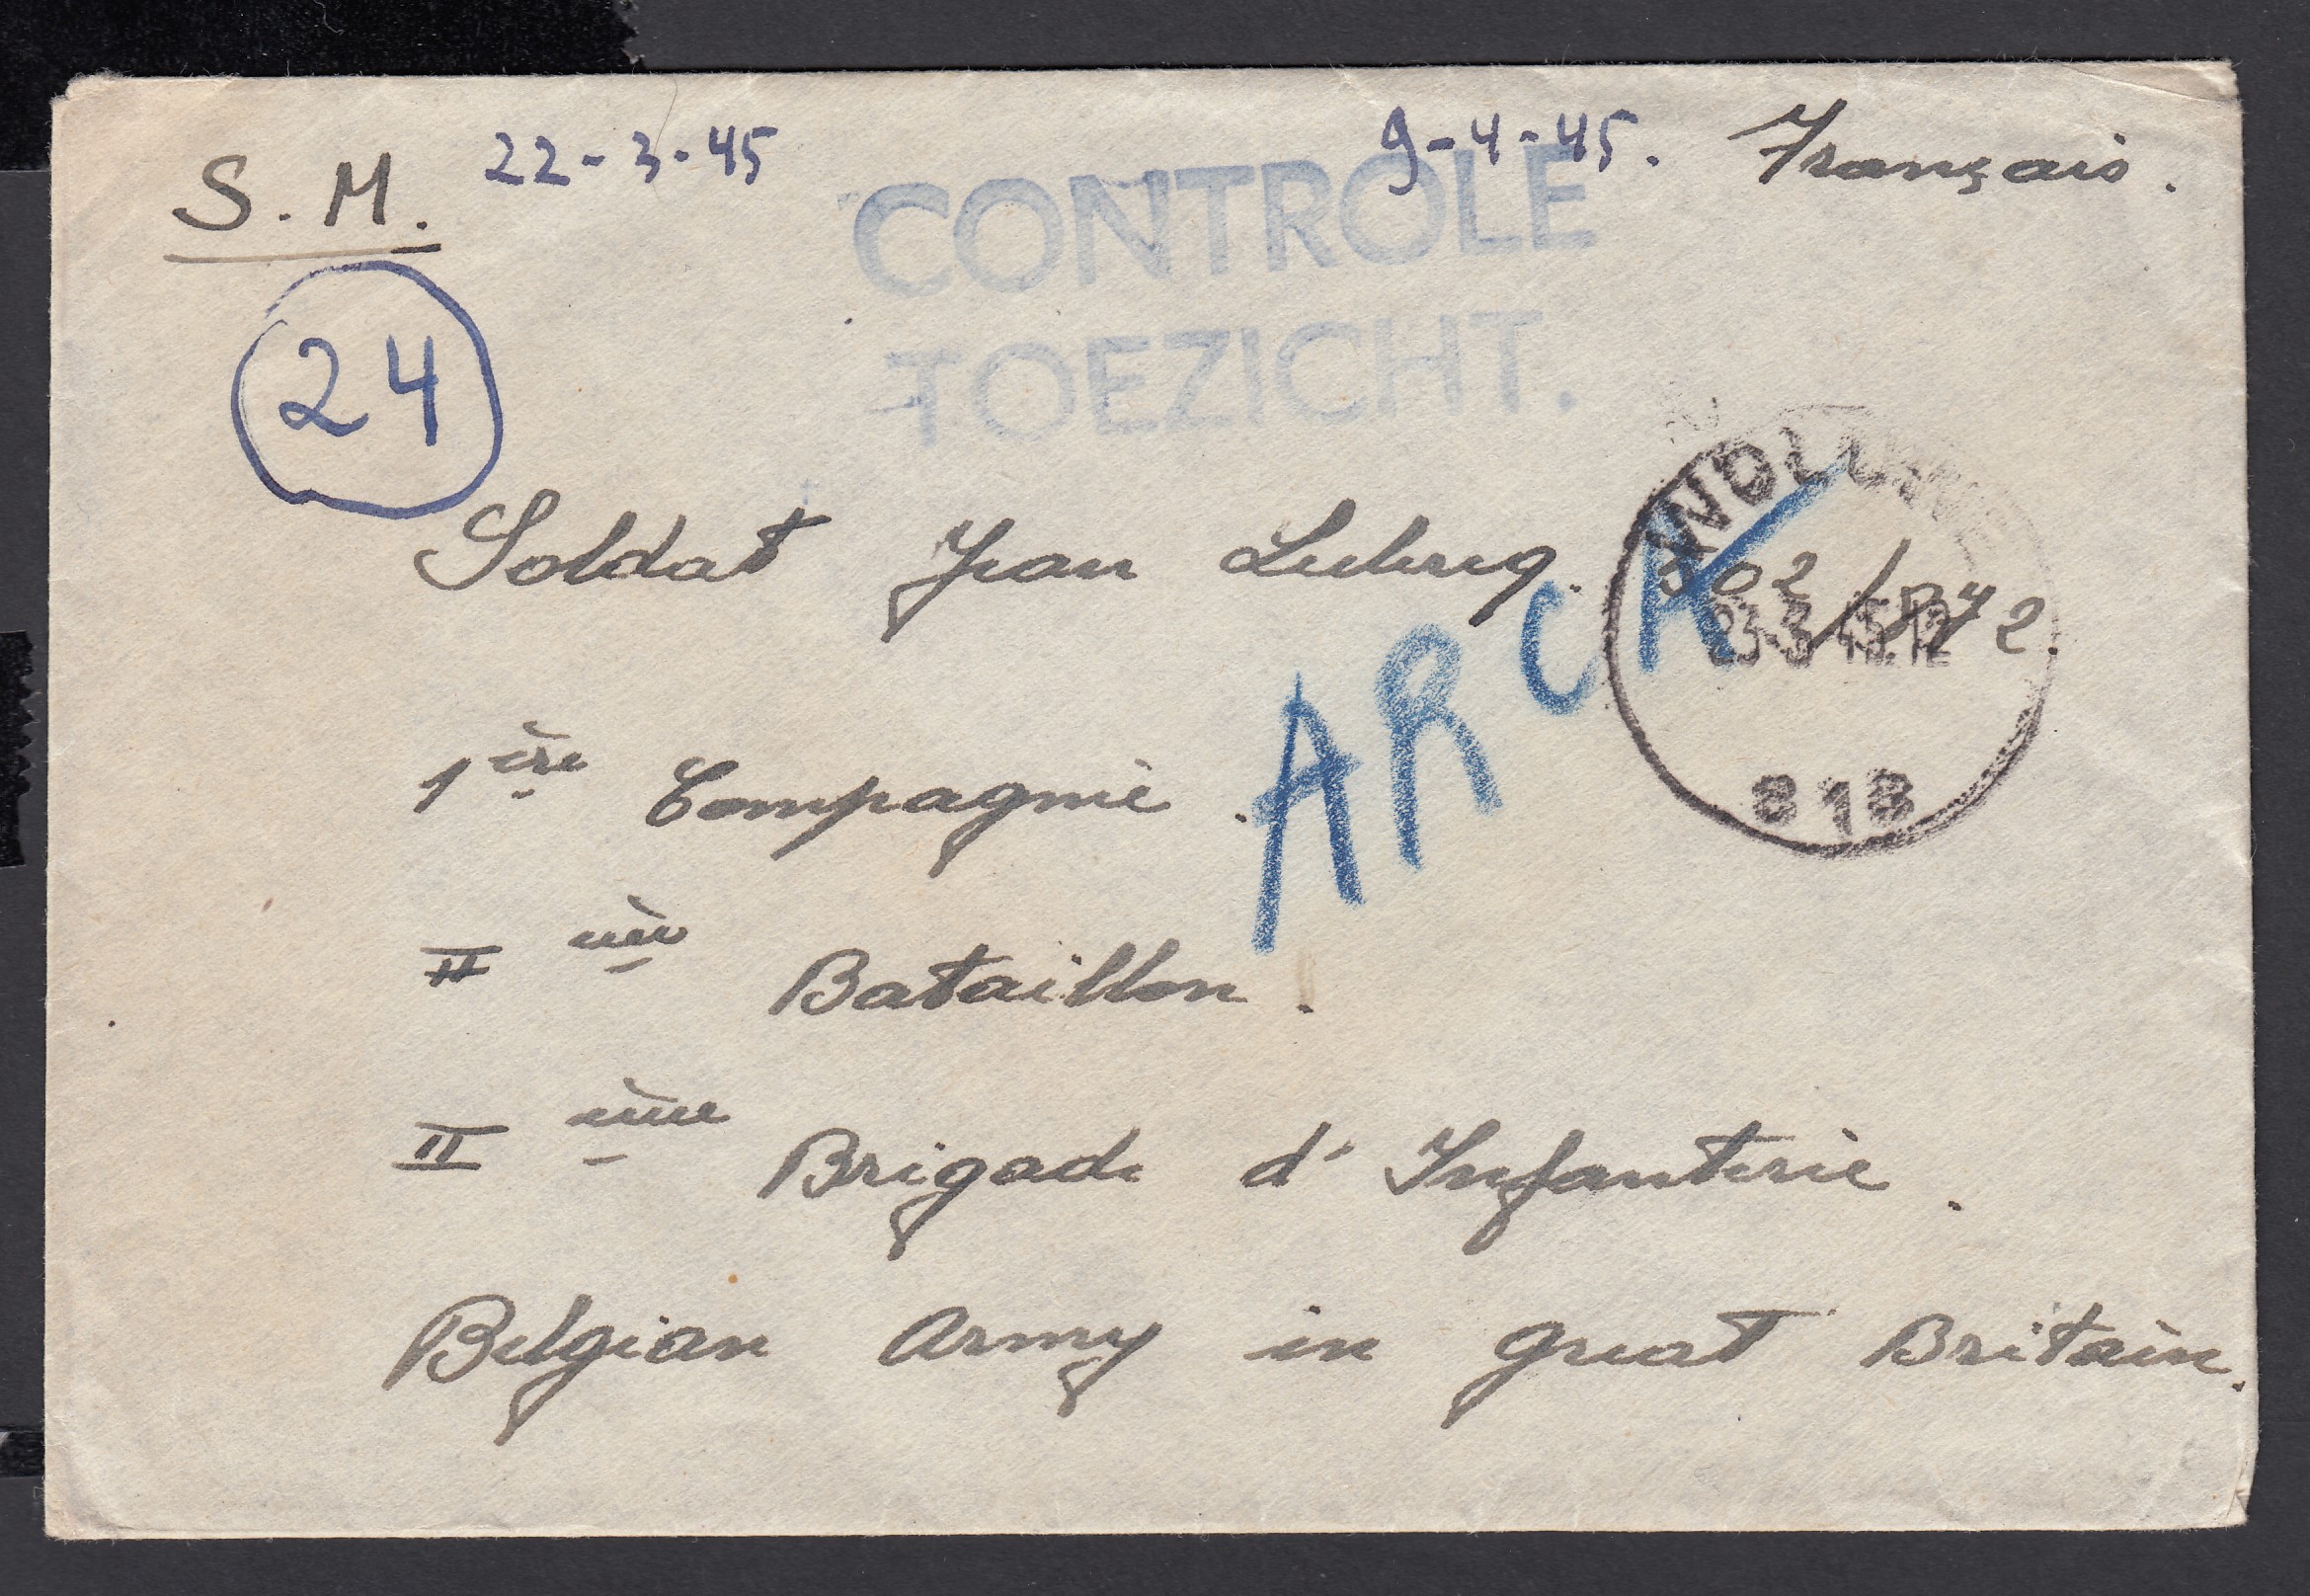 S. M. 22-3-45 9-4-45. Français.
CONTROLE
TOEZICHT.
24
Soldat Jean 502/
ARCK
23-3 45.12
818
1ère Compagnie.
II ème Bataillon.
II ème Brigade d'Infanterie.
Belgian Army in great Britain.